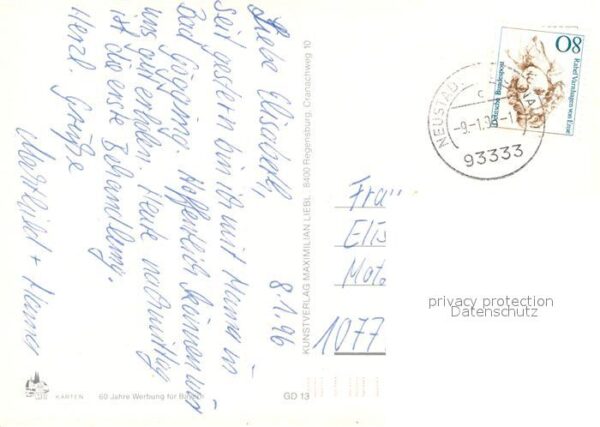 8.1.96
Liebe Elisabeth,
seit gestern bin ich mit Mama in
Bad Gögging. Hoffentlich können wir
uns gut erholen. Heute nachmittag
ist die erste Behandlung.
Herzl. Grüße
+ Mama
KUNSTVERLAG MAXIMILIAN LIEBL 8400 Regensburg, Cranachweg 10
KARTEN
60 Jahre Werbung für
GD 13
80
Rahel Varnhagen von Ense
Deutsche Bundespost
NEUSTAD
-9.-1.9
93333
Frau
Elis
1077
privacy protection
Datenschutz